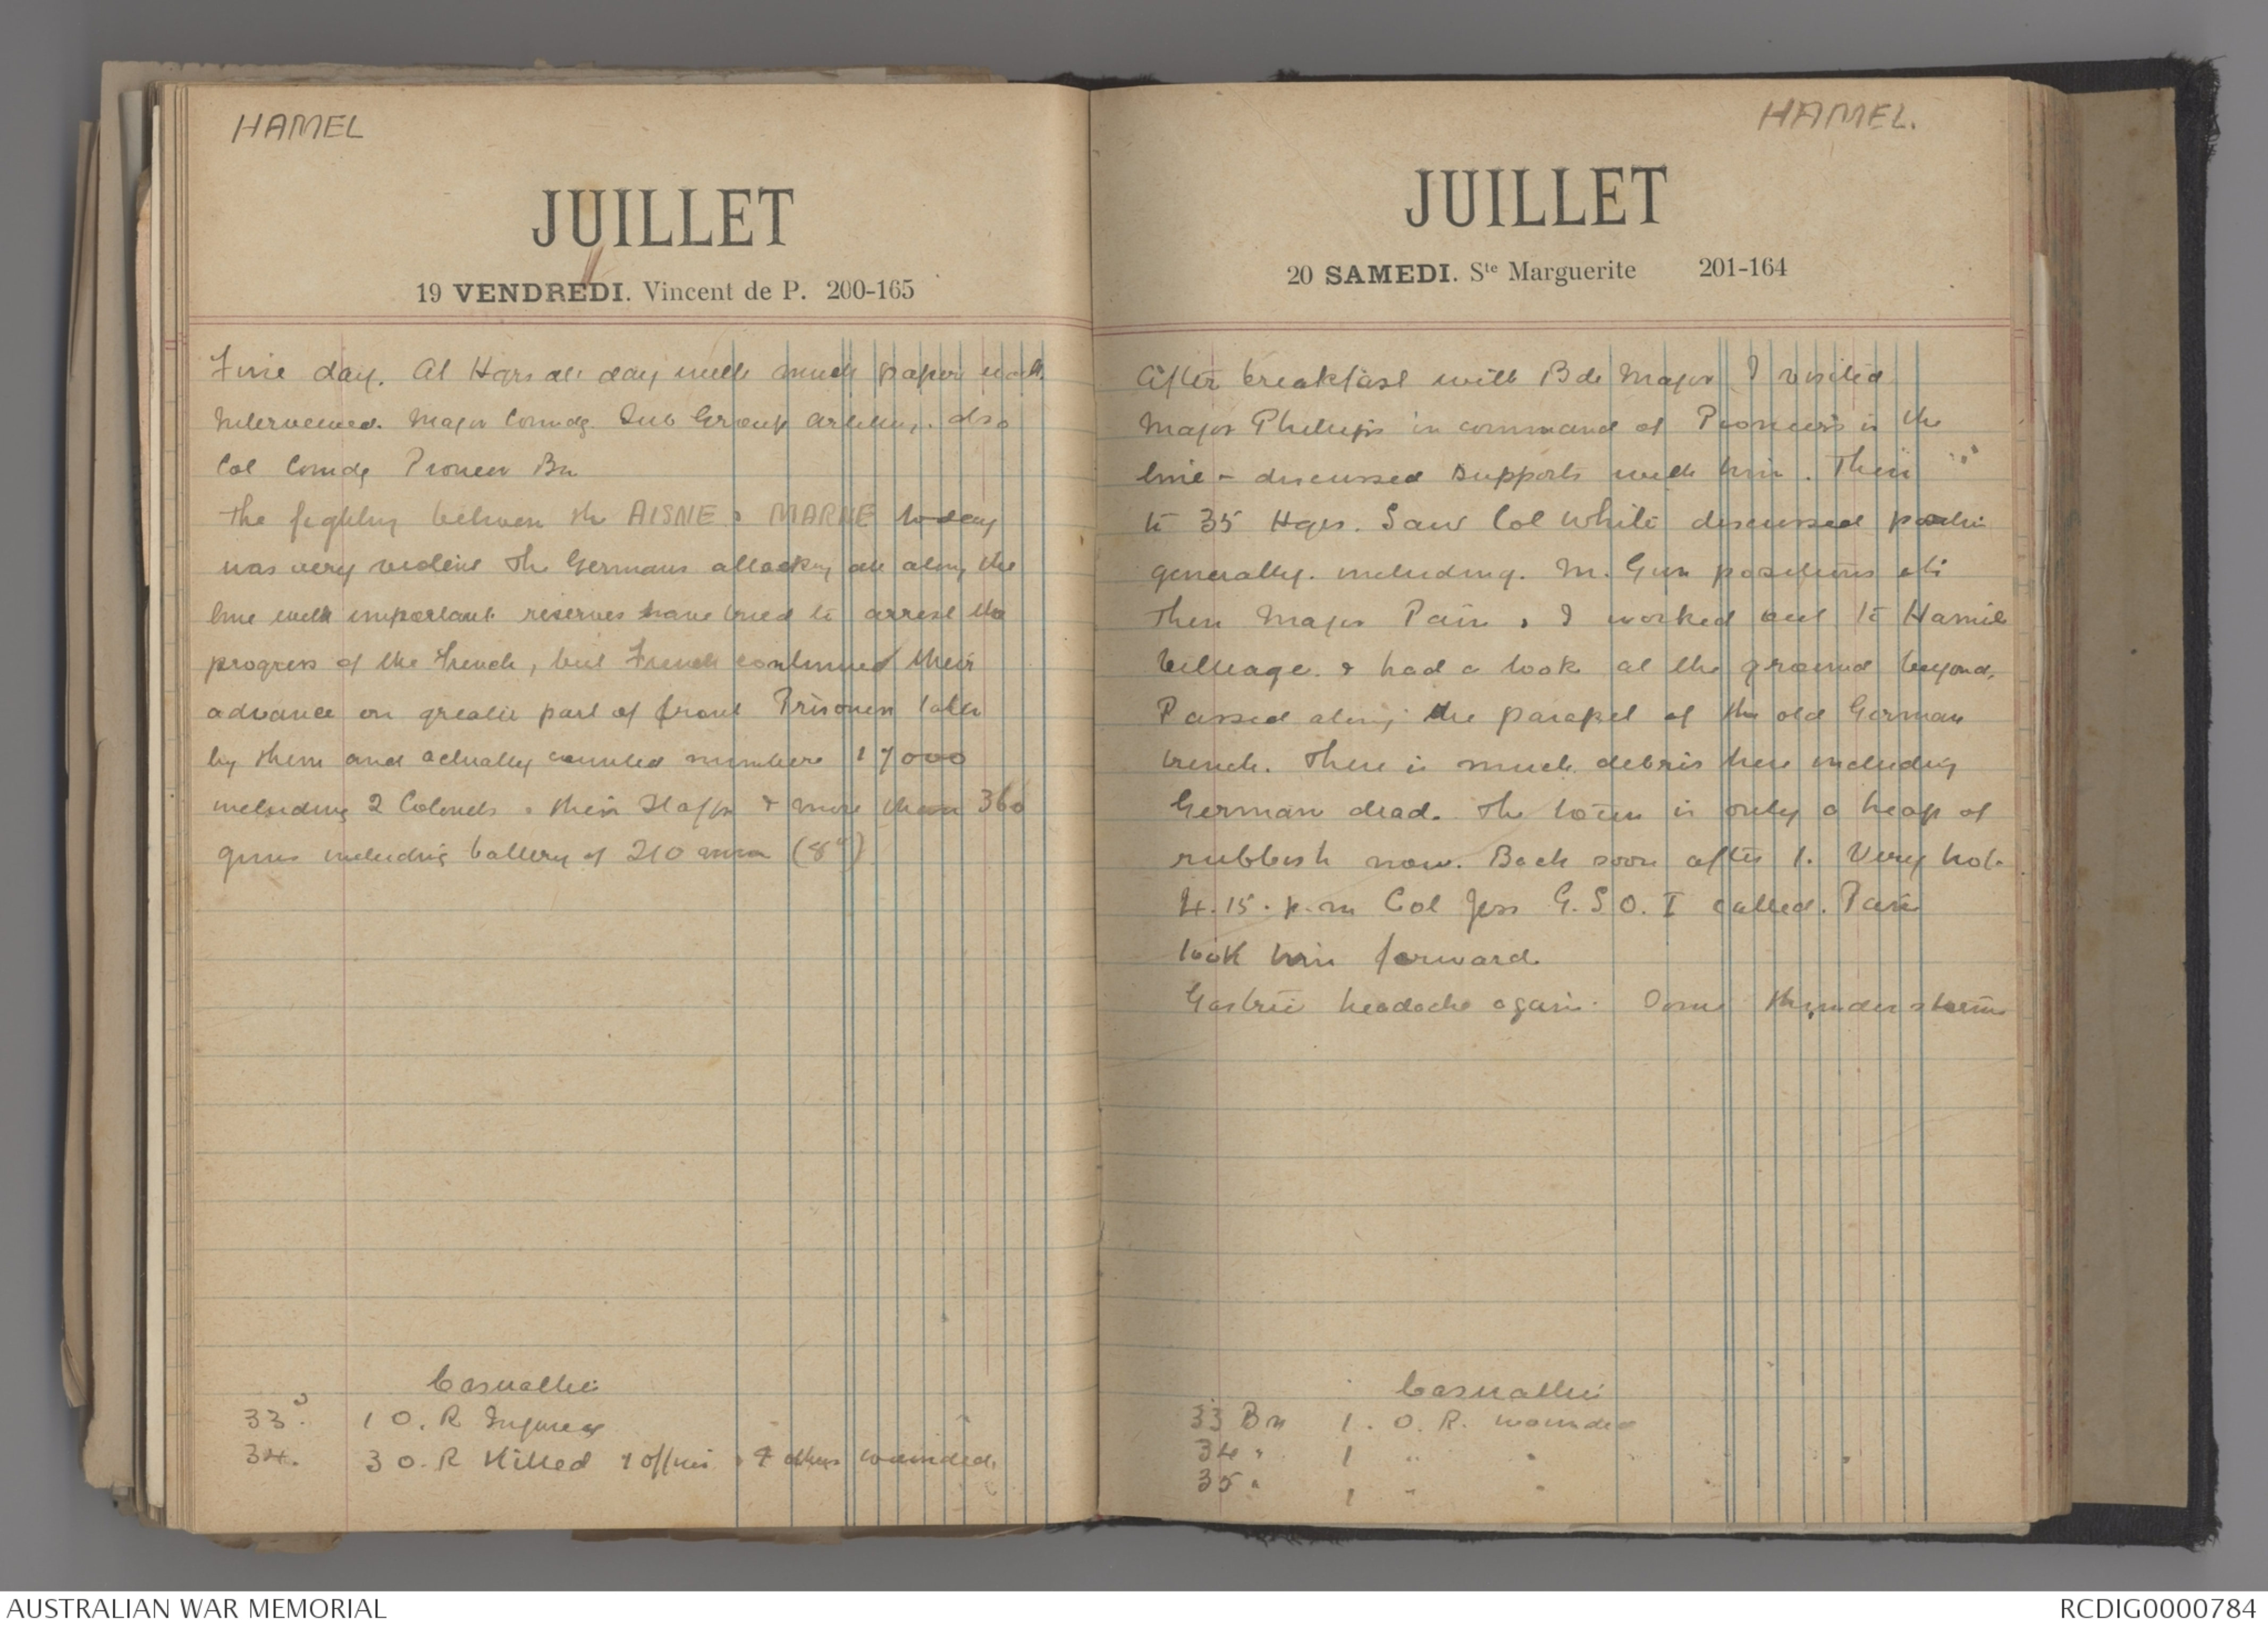 HAMEL
JUILLET
19 VENDREDI. Vincent de P. 200-165
Fine day. At Hqrs all day with much paper work.
Interviewed. Major Comdg. Sub Group artillery. also
Col Comdg Pioneer Bn
The fighting between the AISNE & MARNE to-day
was very violent The Germans attacking all along the
line with important reserves have tried to arrest the
progress of the French, but French continued their
advance on greater part of front Prisoners taken
by them and actually counted numbers 17000
including 2 Colonels & their Staffs & more than 360
guns including battery of 210 mm (8")
Casualties
33. 1 O. R Injured
34. 3 O. R Killed 1 officer & 7 others wounded.
HAMEL.
JUILLET
20 SAMEDI. Ste Marguerite 201-164
After breakfast with Bde Major I visited
Major Phillips in command of Pioneers in the
line - discussed supports with him. Then
to 35 Hqrs. Saw Col White discussed
generally. including. M. Gun positions etc
Then Major Pain & I worked out to Hamel
Village. & had a look at the ground beyond.
Passed along the parapet of the old German
trench. There is much debris here including
German dead. The town is only a heap of
rubbish now. Back soon after 1. Very hot.
4.15. p.m Col Jess G. S O. I called. Pain
took him forward.
Gastric headache again. Some thunder storms
Casualties
33 Bn 1. O. R. wounded
34 " 1 " "
35 " 1 " "
AUSTRALIAN WAR MEMORIAL
RCDIG0000784